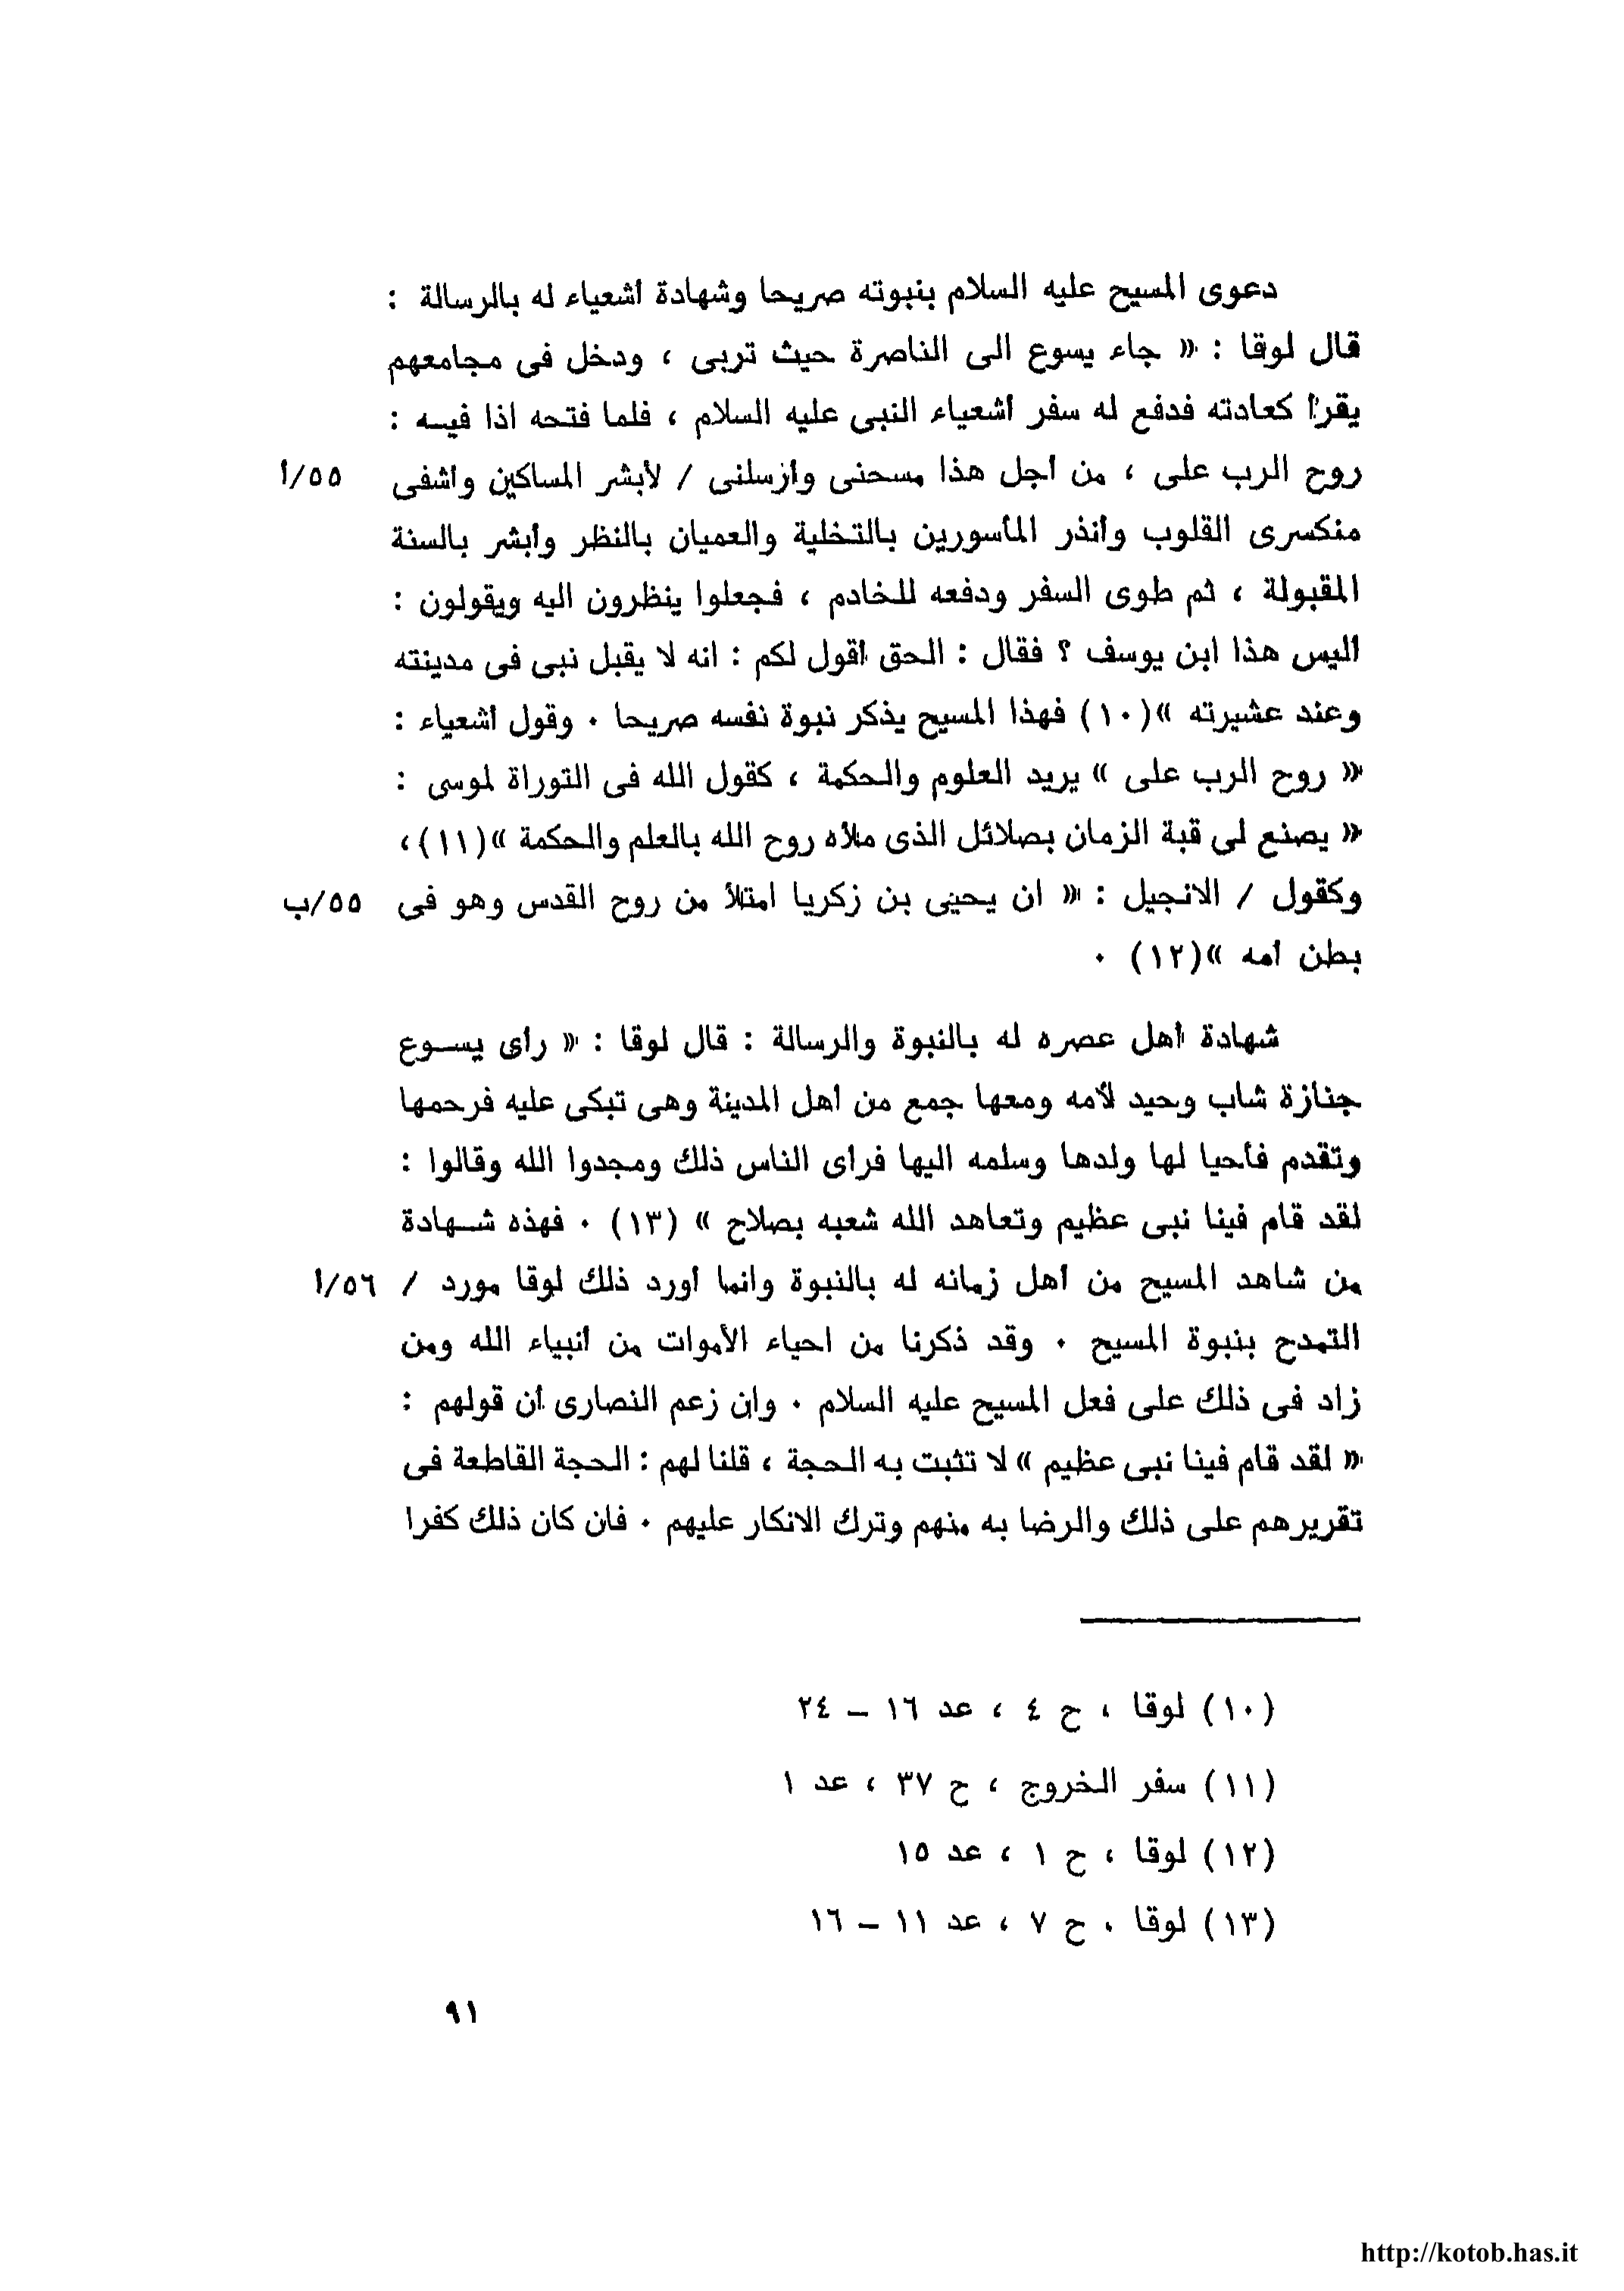 دعوى المسيح عليه السلام بنبوته صريحا وشهادة أشعياء له بالرسالة :
قال لوقا : « جاء يسوع الى الناصرة حيث تربى ، ودخل فى مجامعهم
يقرأ كعادته فدفع له سفر أشعياء النبى عليه السلام ، فلما فتحه اذا فيـه :
روح الرب على ، من أجل هذا مسحنى وأرسلنى / لأبشر المساكين وأشفى ٥٥/أ
منكسرى القلوب وأنذر المأسورين بالتخلية والعميان بالنظر وأبشر بالسنة
المقبولة ، ثم طوى السفر ودفعه للخادم ، فجعلوا ينظرون اليه ويقولون :
أليس هذا ابن يوسف ؟ فقال : الحق أقول لكم : انه لا يقبل نبى فى مدينته
وعند عشيرته »(١٠) فهذا المسيح يذكر نبوة نفسه صريحا ٠ وقول أشعياء :
« روح الرب على » يريد العلوم والحكمة ، كقول الله فى التوراة لموسى :
« يصنع لى قبة الزمان بصلائل الذى ملأه روح الله بالعلم والحكمة »(١١)،
وكقول / الانجيل : « ان يحيى بن زكريا امتلأ من روح القدس وهو فى ٥٥/ب
بطن أمه »(١٢) ٠
شهادة أهل عصره له بالنبوة والرسالة : قال لوقا : « رأى يسـوع
جنازة شاب وحيد لأمه ومعها جمع من أهل المدينة وهى تبكى عليه فرحمها
وتقدم فأحيا لها ولدها وسلمه اليها فرأى الناس ذلك ومجدوا الله وقالوا :
لقد قام فينا نبى عظيم وتعاهد الله شعبه بصلاح » (١٣) ٠ فهذه شـهادة
من شاهد المسيح من أهل زمانه له بالنبوة وانما أورد ذلك لوقا مورد / ٥٦/أ
التمدح بنبوة المسيح ٠ وقد ذكرنا من احياء الأموات من أنبياء الله ومن
زاد فى ذلك على فعل المسيح عليه السلام ٠ وان زعم النصارى أن قولهم :
« لقد قام فينا نبى عظيم » لا تثبت به الحجة ، قلنا لهم : الحجة القاطعة فى
تقريرهم على ذلك والرضا به منهم وترك الانكار عليهم ٠ فان كان ذلك كفرا
(١٠) لوقا ، ح ٤ ، عد ١٦ – ٢٤
(١١) سفر الخروج ، ح ٣٧ ، عد ١
(١٢) لوقا ، ح ١ ، عد ١٥
(١٣) لوقا ، ح ٧ ، عد ١١ – ١٦
٩١
http://kotob.has.it